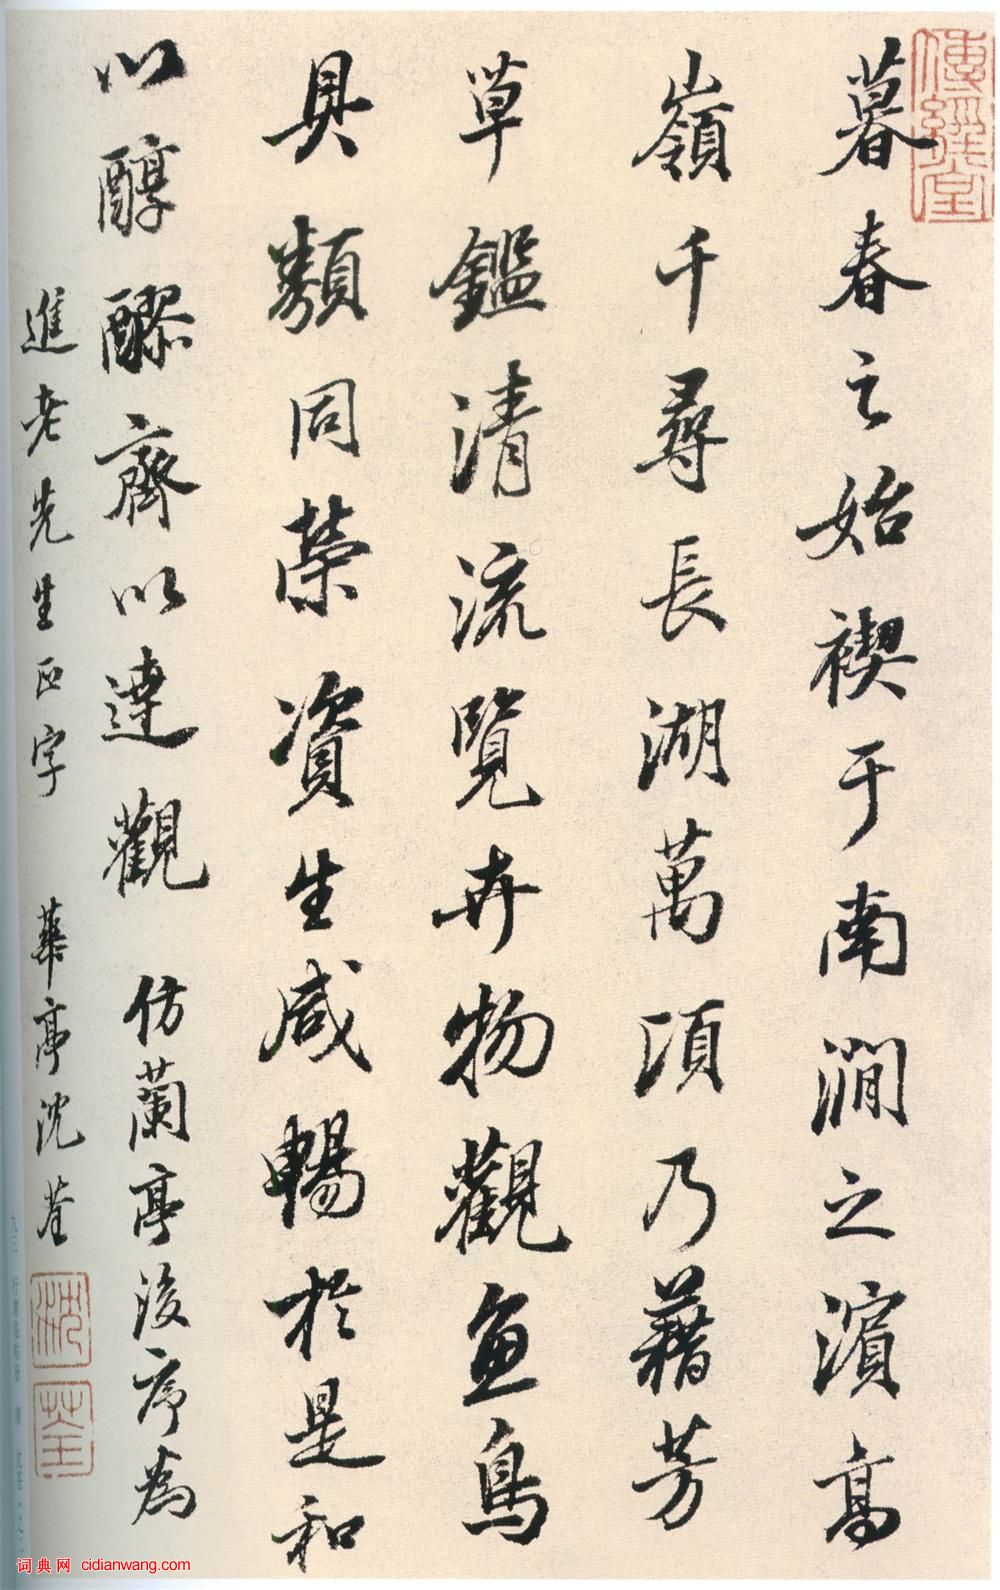 傳經堂
暮春之始禊于南澗之濱高
嶺千尋長湖萬頃乃藉芳
草鑑清流覽卉物觀魚鳥
具類同榮資生咸暢於是和
以醇醪齊以達觀 仿蘭亭後序為
進老先生正字 華亭沈荃
沈
荃
九二 行書臨帖冊 清 沈荃
词典网 cidianwang.com